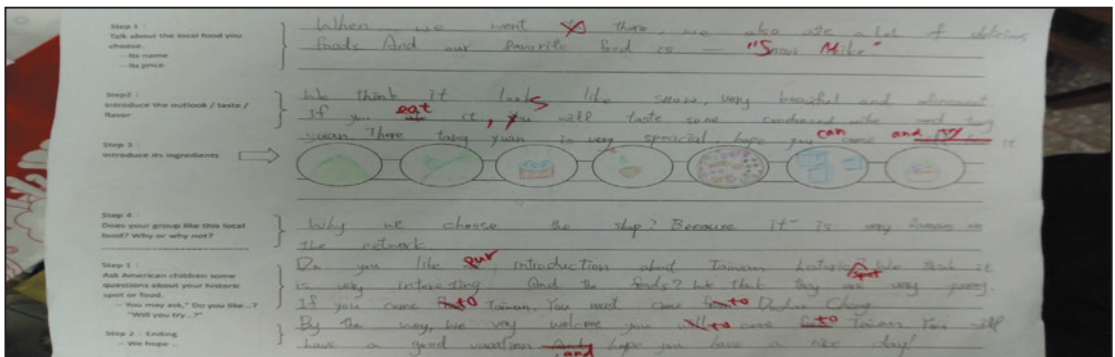 Step 1 :
Talk about the local food you
choose.
-- Its name
-- Its price
When we went there, we also ate a lot of delicious
foods And our favorite food is — "Snow Mike"
Step2 :
Introduce the outlook / taste /
flavor
We think it looks like snow, very beautiful and
If you eat it, you will taste some condensed and tang
yuan. There tang yuan is very speacial hope you can come and try it
Step 3 :
Introduce its ingredients
Step 4 :
Does your group like this local
food? Why or why not?
Why we choose the shop? Because it is very famous on
the network
Step 1 :
Ask American children some
questions about your historic
spot or food.
-- You may ask," Do you like...?
"Will you try...?"
Do you like our introduction about Taiwan historic spot We think it
is very interesting. And the foods? We think they are very yummy.
If you come to Taiwan. You must come to Chang
Step 2 : Ending
-- We hope ...
By the way, We very welcome you to come to Taiwan. You will
have a good vacation and hope you have a nice day!